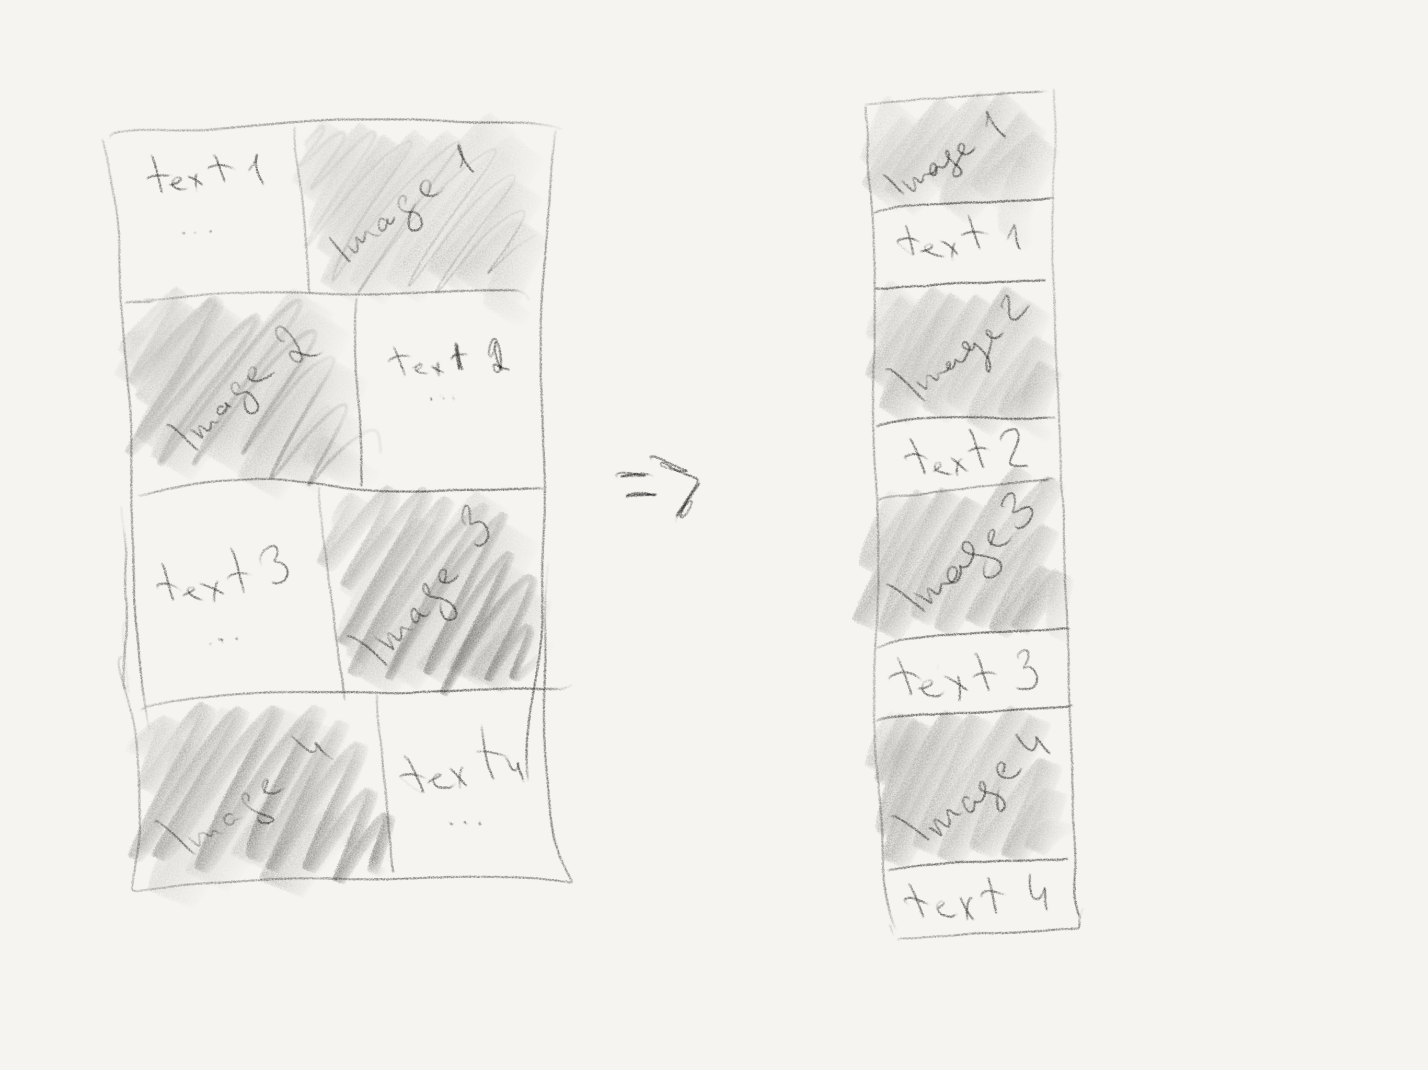 text 1
...
Image 1
Image 2
text 2
...
text 3
...
Image 3
Image 4
text 4
...
=>
Image 1
text 1
Image 2
text 2
Image 3
text 3
Image 4
text 4